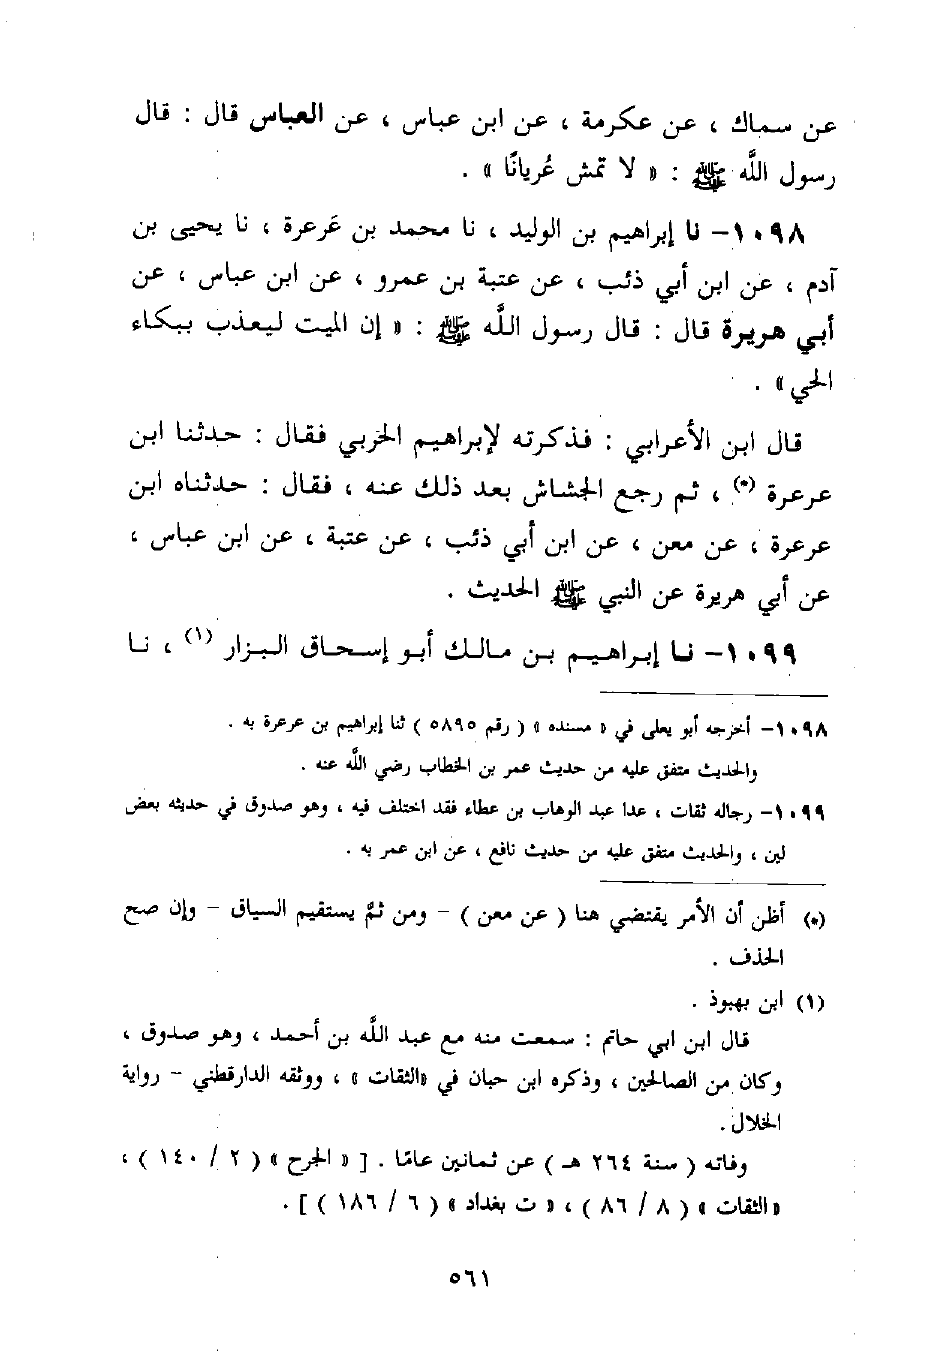 عن سماك ، عن عكرمة ، عن ابن عباس ، عن العباس قال : قال
رسول اللَّه ﷺ : « لا تمش عُريانًا » .
١٠٩٨- نا إبراهيم بن الوليد ، نا محمد بن عَرعرة ، نا يحيى بن
آدم ، عن ابن أبي ذئب ، عن عتبة بن عمرو ، عن ابن عباس ، عن
أبي هريرة قال : قال رسول اللَّه ﷺ : « إن الميت ليعذب ببكاء
الحي » .
قال ابن الأعرابي : فذكرته لإبراهيم الحربي فقال : حدثنا ابن
عرعرة (*) ، ثم رجع الجشاش بعد ذلك عنه ، فقال : حدثناه ابن
عرعرة ، عن معن ، عن ابن أبي ذئب ، عن عتبة ، عن ابن عباس ،
عن أبي هريرة عن النبي ﷺ الحديث .
١٠٩٩- نا إبراهيم بن مالك أبو إسحاق البزار (١) ، نا
١٠٩٨- أخرجه أبو يعلى في « مسنده » ( رقم ٥٨٩٥ ) ثنا إبراهيم بن عرعرة به .
والحديث متفق عليه من حديث عمر بن الخطاب رضي اللَّه عنه .
١٠٩٩- رجاله ثقات ، عدا عبد الوهاب بن عطاء فقد اختلف فيه ، وهو صدوق في حديثه بعض
لين ، والحديث متفق عليه من حديث نافع ، عن ابن عمر به .
(*) أظن أن الأمر يقتضي هنا ( عن معن ) - ومن ثمَّ يستقيم السياق - وإن صح
الحذف .
(١) ابن بهبوذ .
قال ابن ابي حاتم : سمعت منه مع عبد اللَّه بن أحمد ، وهو صدوق ،
وكان من الصالحين ، وذكره ابن حبان في «الثقات » ، ووثقه الدارقطني - رواية
الخلال .
وفاته ( سنة ٢٦٤ هـ ) عن ثمانين عامًا . [ « الجرح » ( ٢ / ١٤٠ ) ،
«الثقات » ( ٨ / ٨٦ ) ، « ت بغداد » ( ٦ / ١٨٦ ) ] .
٥٦١